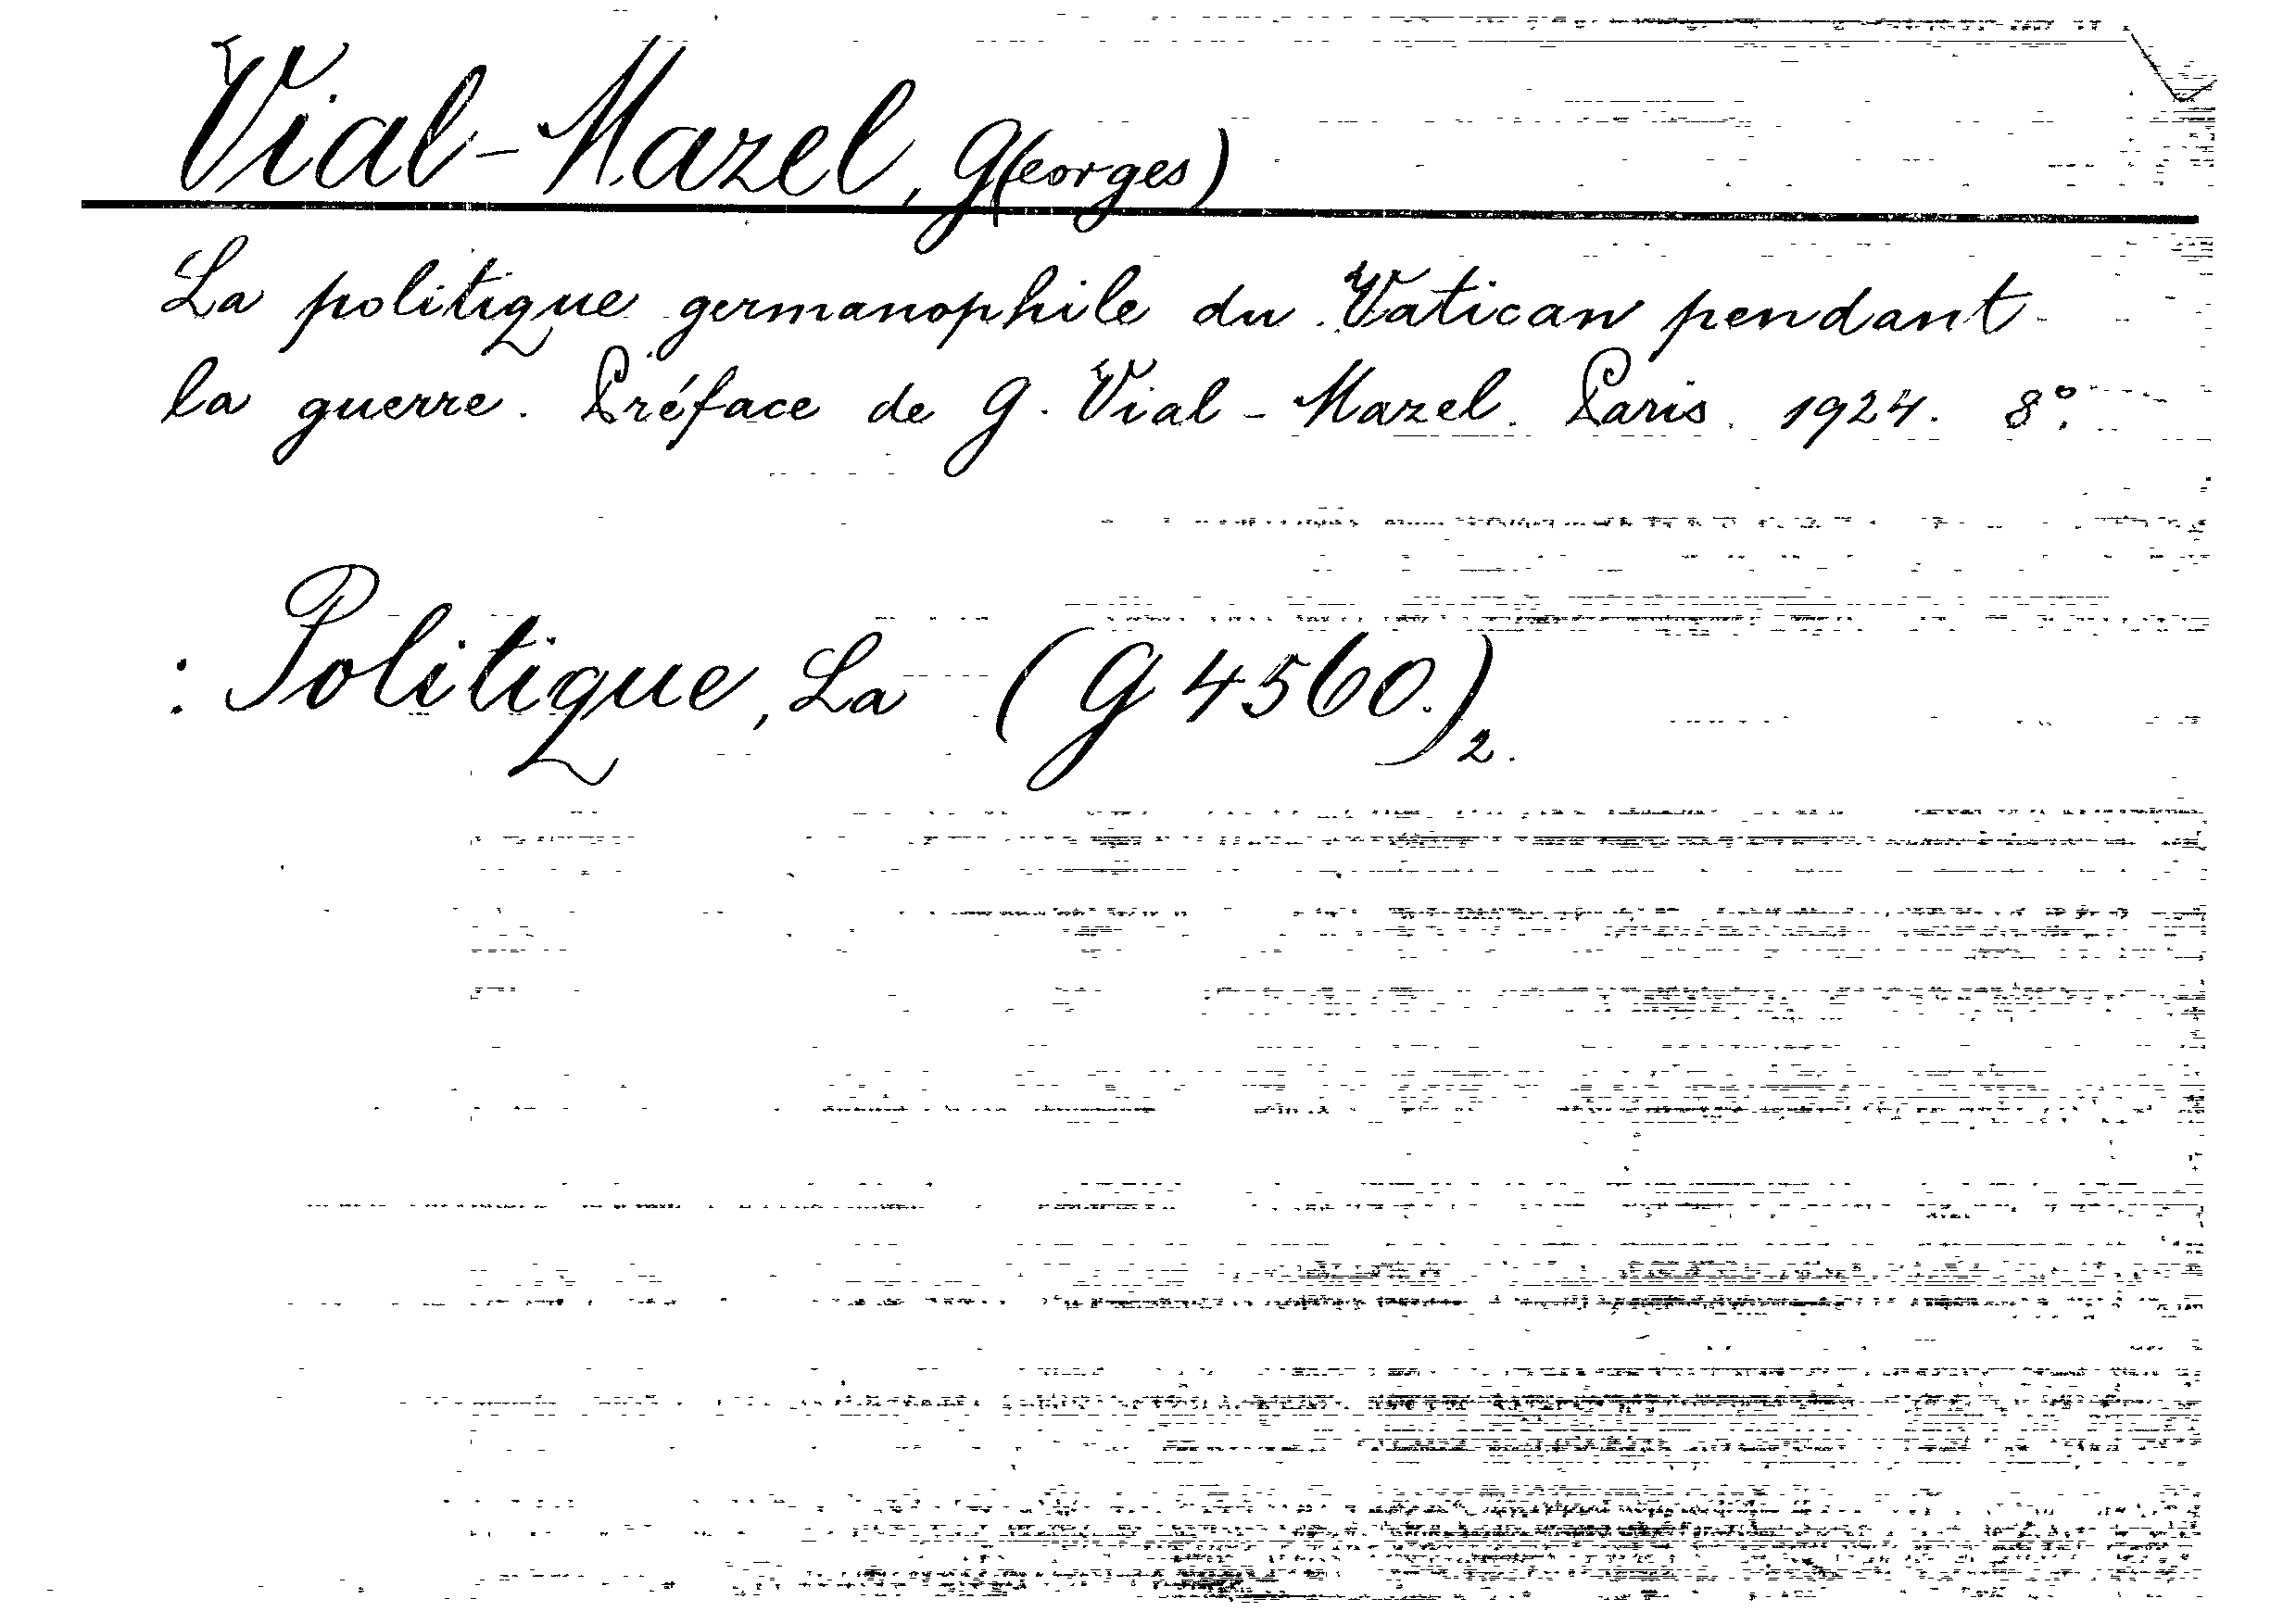 Vial-Mazel, G(eorges)
La politique germanophile du Vatican pendant
la guerre. Préface de G. Vial-Mazel. Paris. 1924. 8°.
: Politique, La (G 4560.)2.